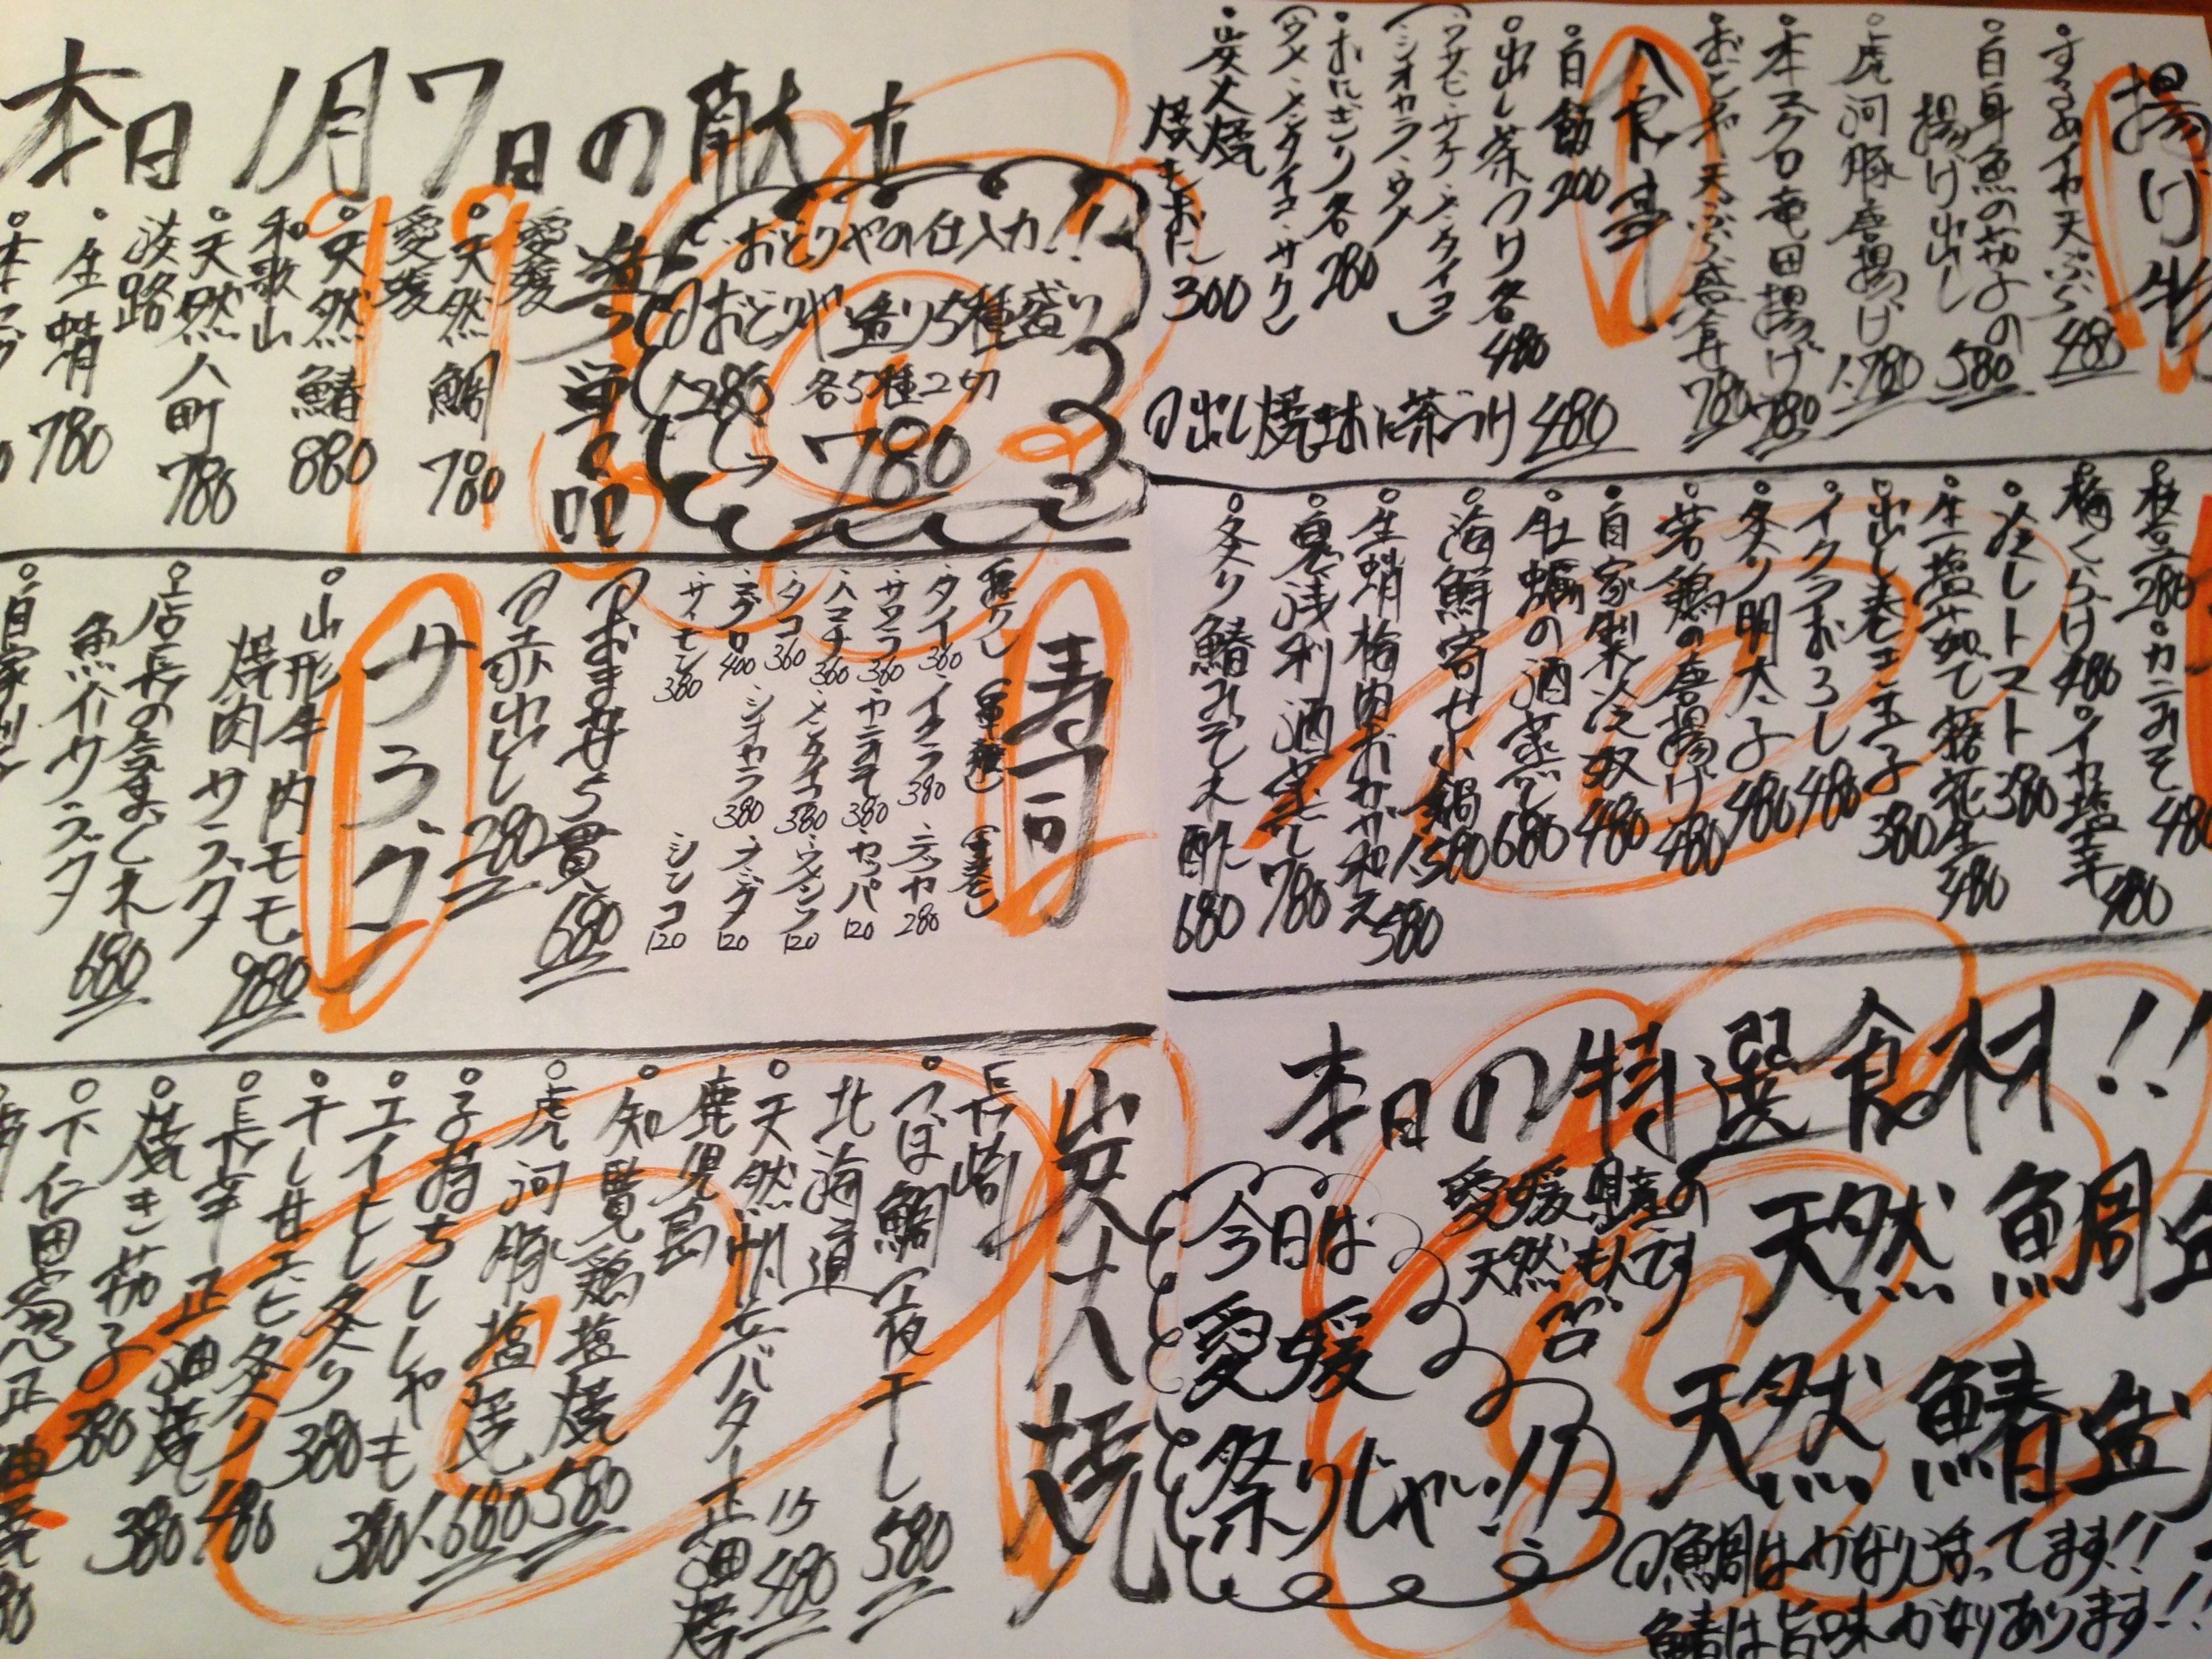 本日1月7日の献立
おとりやの仕入力!!
おとりや造り5種盛り
1280
各5種2切
780
造り単品
愛媛
天然鯛 780
愛媛
天然鰆 880
和歌山
天然八町 788
淡路
生蛸 780
揚げ物
するめイカ天ぷら 480
白身魚の茄子の
揚げ出し 580
虎河豚唐揚げ 1.780
本マグロ竜田揚げ 780
おとりや天ぷら盛合せ 780
食事
白飯 200
出し茶づけ各 480
(ワサビ・サケ・メンタイコ
シオカラ・ウメ)
おにぎり各 280
(ウメ・メンタイコ・サケ)
炭火焼
焼きおに 300
出し焼きおに茶づけ 480
枝豆 280
カニみそ 480
梅くらげ 480
イカ塩辛 480
冷しトマト 380
生塩茹で落花生 480
出し巻き玉子 380
イクラおろし 480
炙り明太子 480
若鶏の唐揚げ 480
自家製冷奴 480
牡蠣の酒蒸し 680
海鮮寄せ小鍋 1.580
生蛸梅肉おかか和え 580
鬼浅利酒蒸し 780
炙り鰆みぞれ酢 680
寿司
(握り)
タイ 360
サワラ 360
ハマチ 360
タコ 360
マグロ 400
サーモン 380
(軍艦)
イクラ 380
カニミソ 380
メンタイコ 380
シオカラ 380
(細巻)
テッカ 280
カッパ 120
ウメシソ 120
シンコ 120
おまかせ5貫 680
赤出し 280
サラダ
山形牛内モモ
焼肉サラダ 980
店長の気まぐれ
魚介サラダ 680
炭火焼
長崎
つぼ鯛一夜干し 580
北海道
天然帆立バター正油焼 1ケ 480
鹿児島
知覧鶏塩焼 580
虎河豚塩焼 1.680
子持ちししゃも 380
エイヒレ炙り 380
干し甘エビ炙り 480
長芋正油焼 380
焼き茄子 380
本日の特選食材!!
天然鯛造
愛媛県産の
天然もんです
天然鰆造り
今日は
愛媛
祭りじゃい!!
鯛はかなり活ってます!!
鰆は旨味かなりあります!!